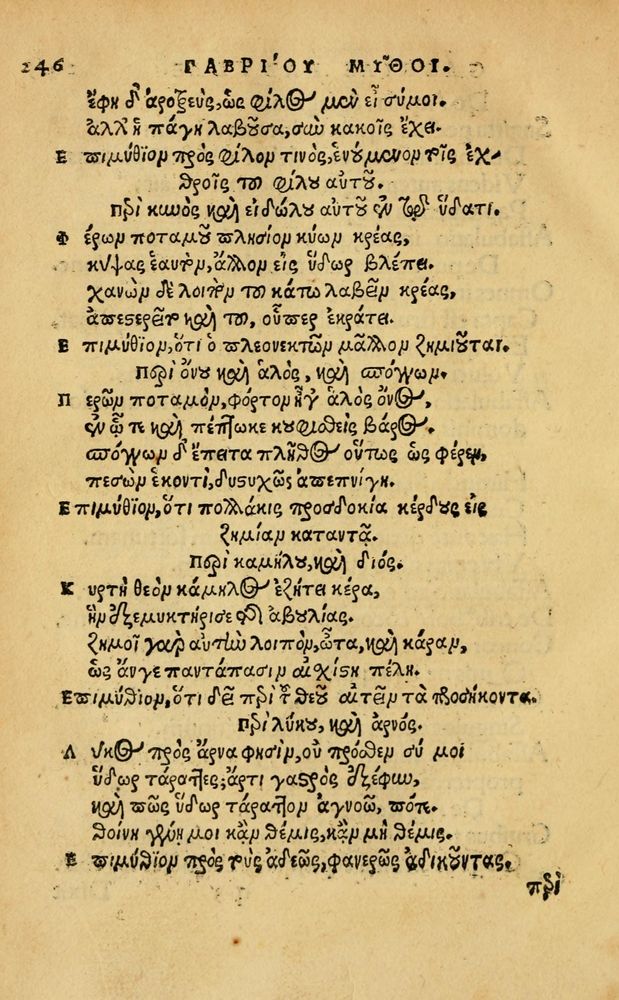 246 ΓΑΒΡΙ´ΟΥ ΜΥ͂ΘΟΙ.
ἔφη δ' ἀροξεύς, ὡς φίλος μὲν εἶ σύ μοι.
ἀλλ' ἡ πάγη λαβοῦσα, σὺν κακοῖς ἔχει.
Ἐπιμύθιον πρὸς φίλον τινὸς, ἑνούμενον τοῖς ἐχ-
θροῖς τοῦ φίλου αὐτοῦ.
Περὶ κυνὸς καὶ εἰδώλου αὐτοῦ ἐν τῷ ὕδατι.
Φέρων ποταμοῦ πλησίον κύων κρέας,
κύψας ἑαυτὸν, ἄλλον εἰς ὕδωρ βλέπει.
χανὼν δὲ λοιπὸν τοῦ κάτω λαβεῖν κρέας,
ἀπεστερεῖτο καὶ τοῦ, οὗπερ ἐκράτει.
Ἐπιμύθιον, ὅτι ὁ πλεονεκτῶν μᾶλλον ζημιοῦται.
Περὶ ὄνου καὶ ἁλὸς, καὶ σπόγγων.
Περῶν ποταμὸν, φόρτον ἦγ' ἁλὸς ὄνος,
ἐν ᾧ τι καὶ πέπτωκε κουφισθεὶς βάρος.
σπόγγων δ' ἔπειτα πλῆθος οὕτως ὡς φέρεν,
πεσὼν ἑκοντὶ, δυστυχῶς ἀπεπνίγη.
Ἐπιμύθιον, ὅτι πολλάκις προσδοκία κέρδους εἰς
ζημίαν καταντᾷ.
Περὶ καμήλου, καὶ διός.
Κυρτὴ θεὸν κάμηλος ἐζήτει κέρα,
ἣν ἐξεμυκτήρισε τῆς ἀβουλίας.
ζημοῖ γὰρ αὐτὴν λοιπὸν, ὦτα, καὶ κάραν,
ὡς ἄν γε παντάπασιν αἰσχίστη πέλῃ.
Ἐπιμύθιον, ὅτι δεῖ περὶ τοῦ θεοῦ αἰτεῖν τὰ προσήκοντα.
Περὶ λύκου, καὶ ἀρνός.
Λύκος πρὸς ἄρνα φησὶν, οὐ πρόσθεν σύ μοι
ὕδωρ τάραττες; ἄρτι γαστρὸς ἐξέφυν,
καὶ πῶς ὕδωρ τάραττον ἀγνοῶ, πότε.
θοίνη γενῇ μοι κἂν θέμις, κἂν μὴ θέμις.
Ἐπιμύθιον πρὸς τοὺς ἀδεῶς, φανερῶς ἀδικοῦντας.
περὶ